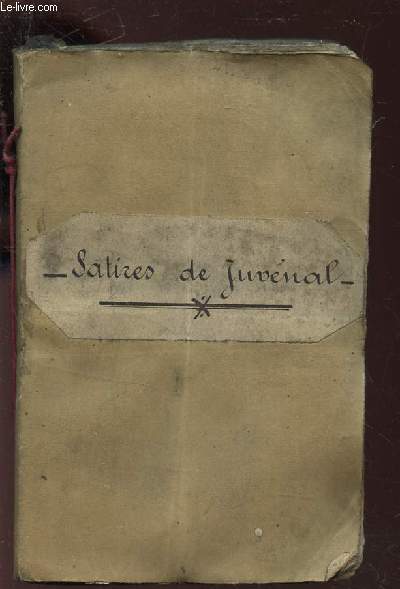 Le-livre.com
- Satires de Juvénal -